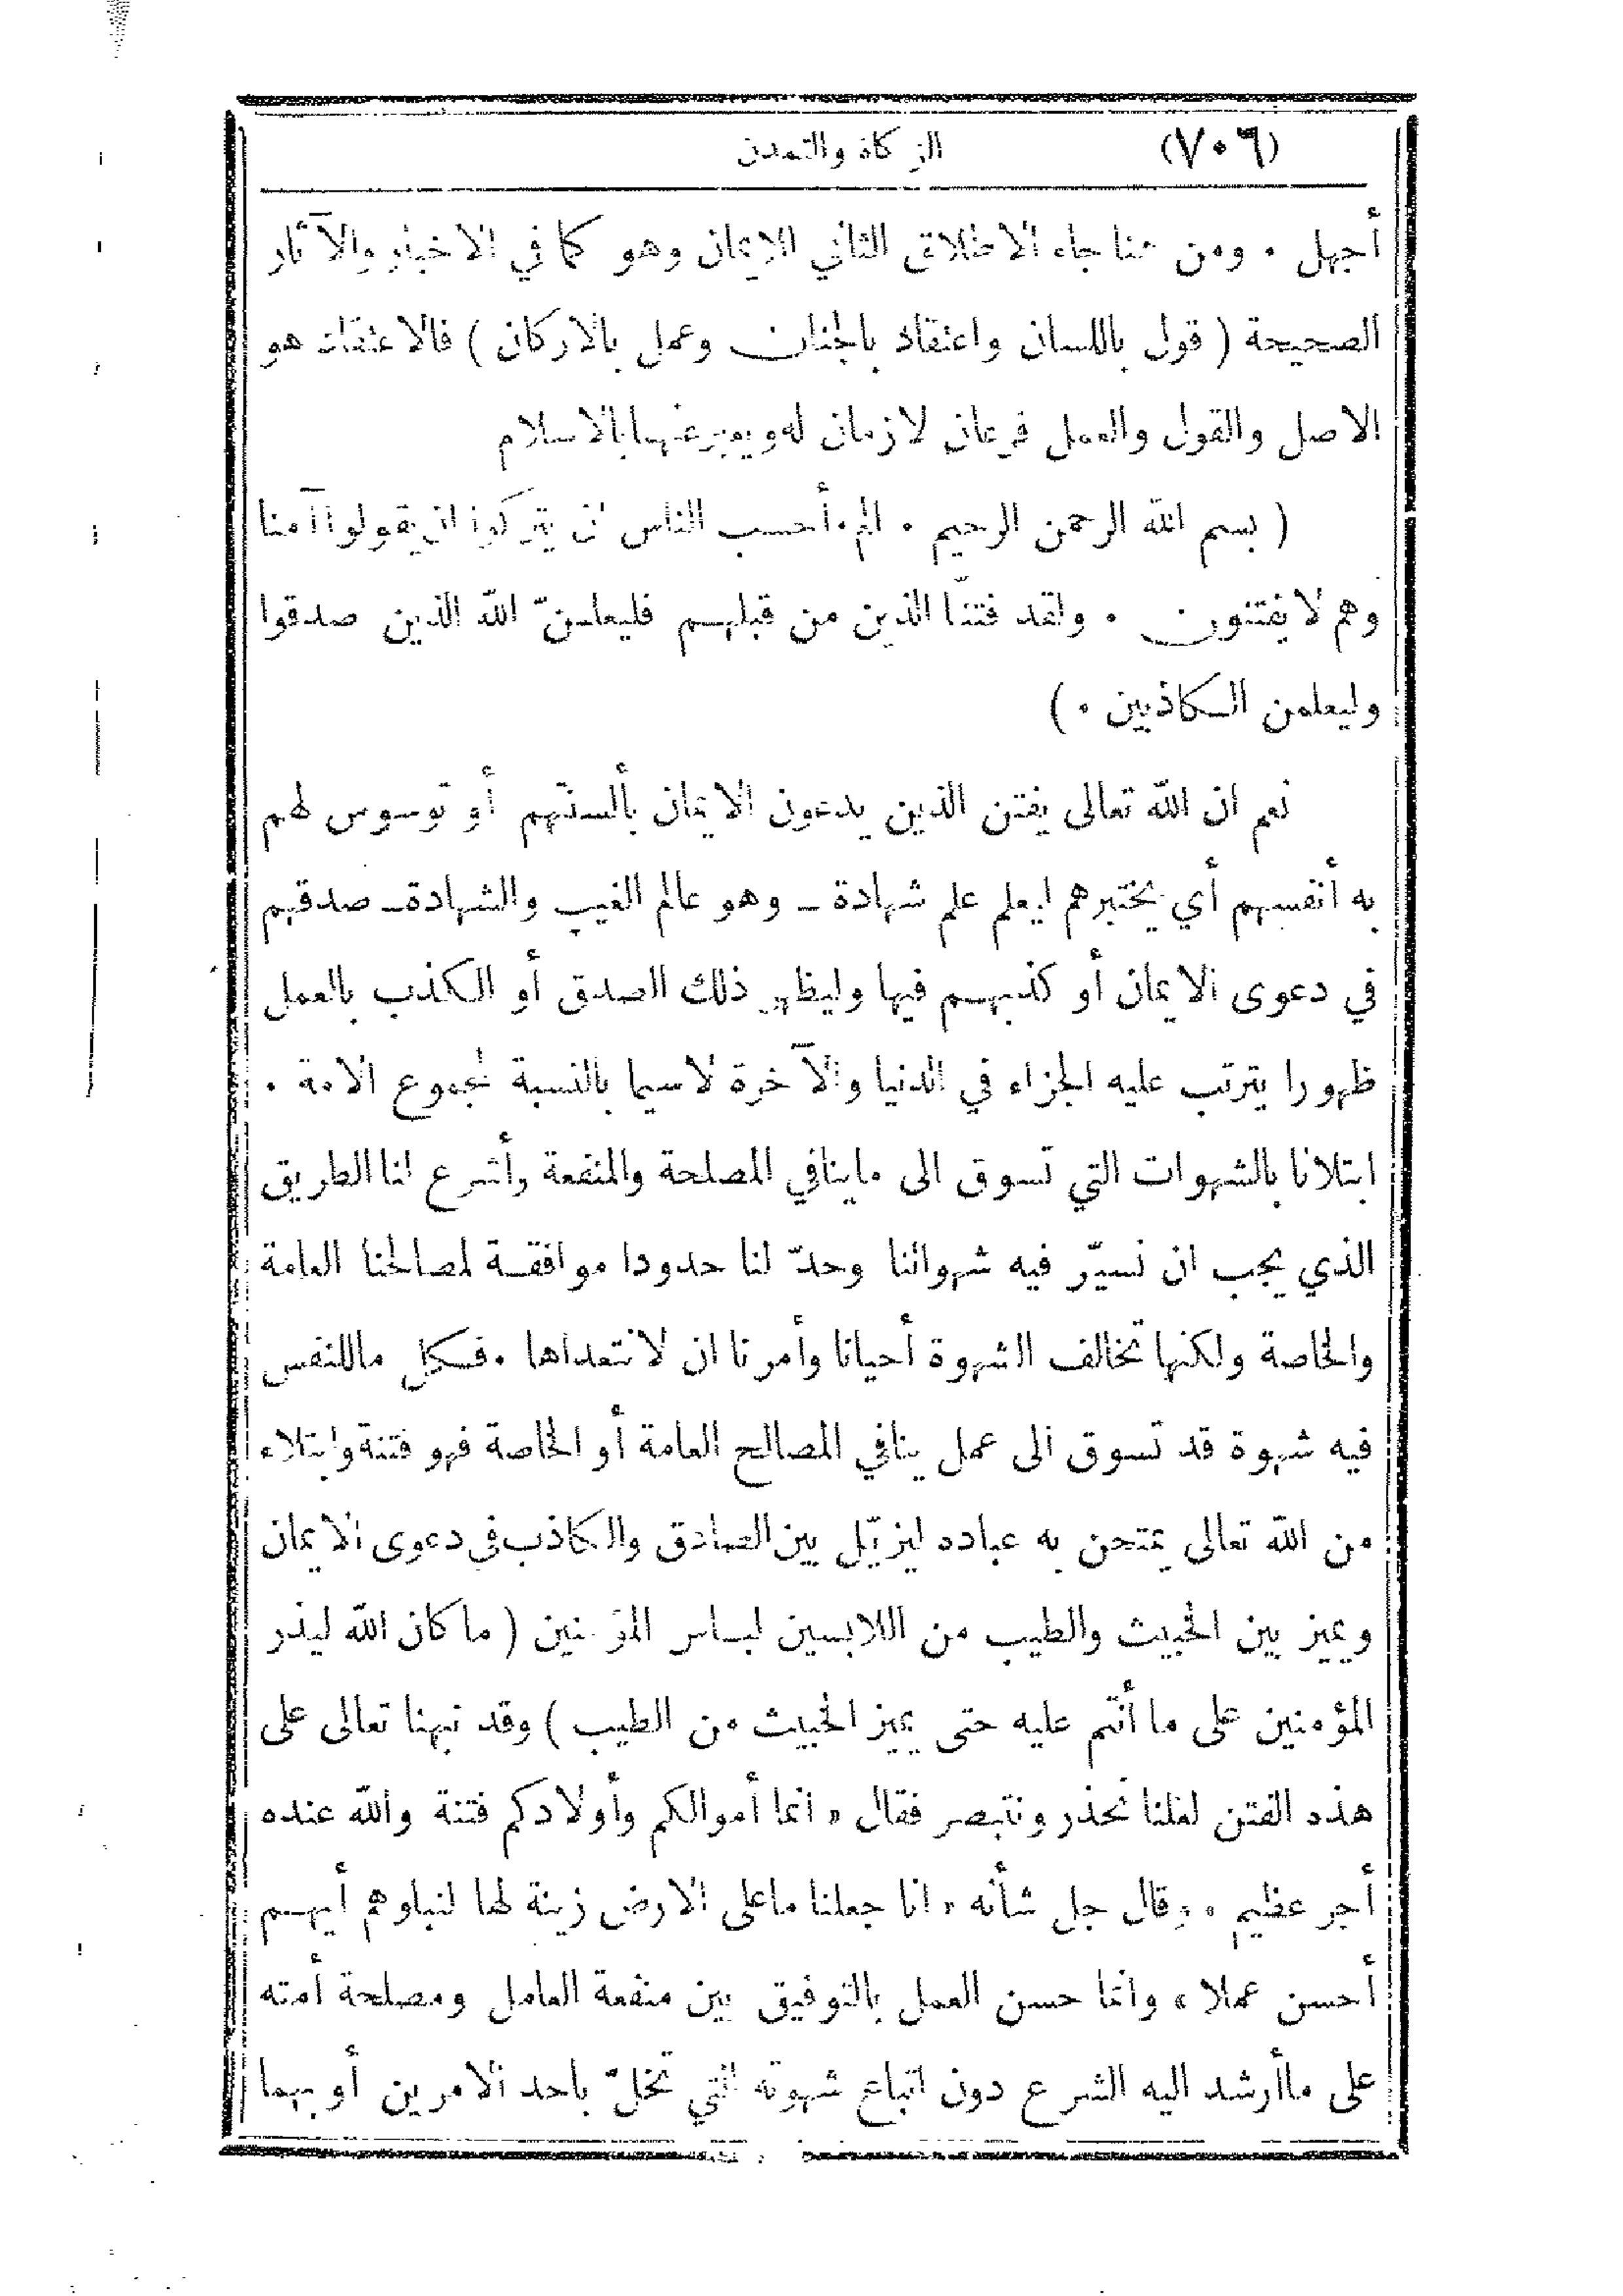 (٧٠٦) الزكاة والتمدن
أجهل . ومن هنا جاء الاطلاق الثاني للايمان وهو كما في الاخبار والآثار
الصحيحة ( قول باللسان واعتقاد بالجنان وعمل بالاركان ) فالاعتقاد هو
الاصل والقول والعمل فرعان لازمان له ويعبر عنهما بالاسلام
( بسم الله الرحمن الرحيم . الم . أحسب الناس ان يتركوا ان يقولوا آمنا
وهم لا يفتنون . ولقد فتنّا الذين من قبلهم فليعلمنّ الله الذين صدقوا
وليعلمن الكاذبين . )
نعم ان الله تعالى يفتن الذين يدعون الايمان بألسنتهم أو توسوس لهم
به أنفسهم أي يختبرهم ليعلم علم شهادة ــ وهو عالم الغيب والشهادة ــ صدقهم
في دعوى الايمان أو كذبهم فيها وليظهر ذلك الصدق أو الكذب بالعمل
ظهورا يترتب عليه الجزاء في الدنيا والآخرة لاسيما بالنسبة لمجموع الامة .
ابتلانا بالشهوات التي تسوق الى ماينافي المصلحة والمنفعة وأشرع لنا الطريق
الذي يجب ان نسيّر فيه شهواتنا وحدّ لنا حدودا موافقة لمصالحنا العامة
والخاصة ولكنها تخالف الشهوة أحيانا وأمرنا ان لا نتعداها . فكل ماللنفس
فيه شهوة قد تسوق الى عمل ينافي المصالح العامة أو الخاصة فهو فتنة وابتلاء
من الله تعالى يمتحن به عباده ليزيّل بين الصادق والكاذب في دعوى الايمان
ويميز بين الخبيث والطيب من اللابسين لباس المؤمنين ( ما كان الله ليذر
المؤمنين على ما أنتم عليه حتى يميز الخبيث من الطيب ) وقد نبهنا تعالى على
هذه الفتن لعلنا نحذر ونتبصر فقال « انما أموالكم وأولادكم فتنة والله عنده
أجر عظيم » وقال جل شأنه « انا جعلنا ماعلى الارض زينة لها لنبلوهم أيهم
أحسن عملا » وانما حسن العمل بالتوفيق بين منفعة العامل ومصلحة أمته
على ماأرشد اليه الشرع دون اتباع شهوته التي تخلّ باحد الامرين أو بهما